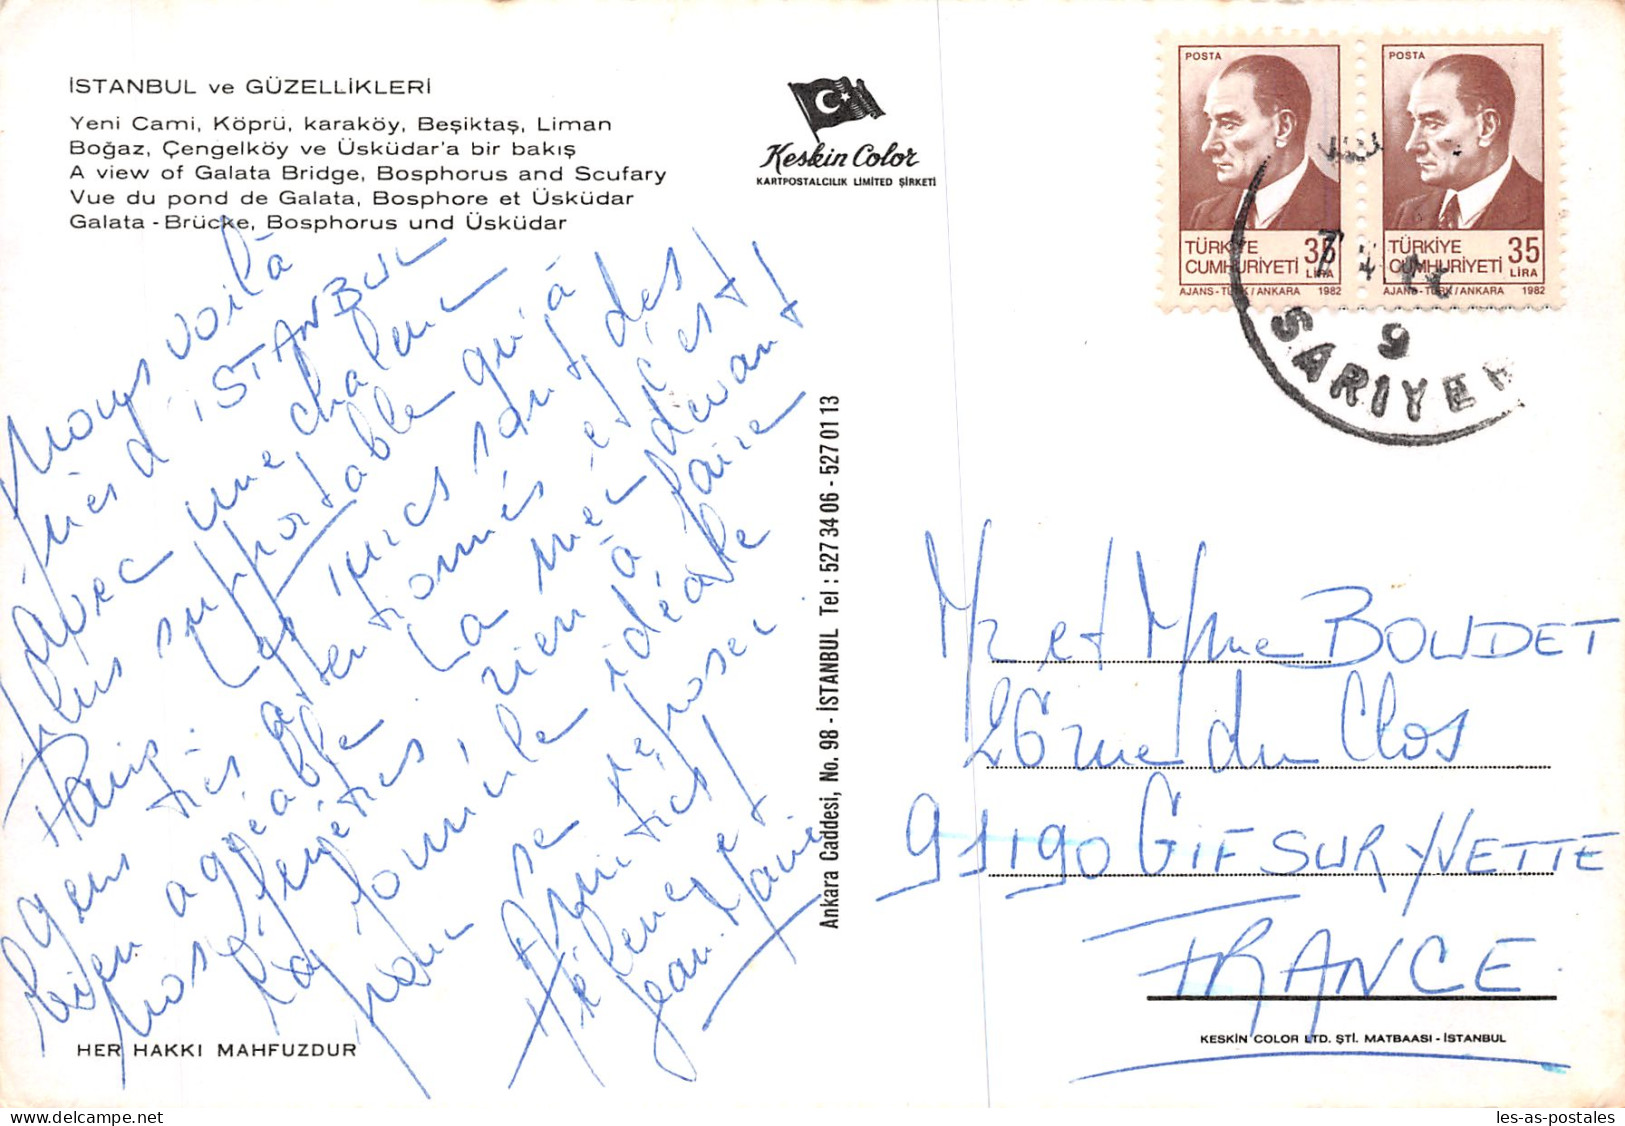 İSTANBUL ve GÜZELLİKLERİ
Yeni Cami, Köprü, karaköy, Beşiktaş, Liman
Boğaz, Çengelköy ve Üsküdar'a bir bakış
A view of Galata Bridge, Bosphorus and Scufary
Vue du pond de Galata, Bosphore et Üsküdar
Galata - Brücke, Bosphorus und Üsküdar
Keskin Color
KARTPOSTALCILIK LIMITED ŞİRKETİ
POSTA
TÜRKİYE 35
CUMHURİYETİ LİRA
AJANS-TÜRK/ANKARA 1982
POSTA
TÜRKİYE 35
CUMHURİYETİ LİRA
AJANS-TÜRK/ANKARA 1982
9
SARIYER
Nous voilà
près d'ISTANBUL
avec une chaleur
plus supportable qu'à
Paris. Les turcs sont des
gens très attentionnés et c'est
bien agréable. La mer devant
nos fenêtres, rien à faire
la formule idéale
pour se reposer
Amitiés
Hélène et
Jean-Marie
Ankara Caddesi, No. 98 - İSTANBUL Tel : 527 34 06 - 527 01 13
Mr et Mme BOUDET
26 rue du Clos
91190 GIF SUR YVETTE
FRANCE
HER HAKKI MAHFUZDUR
KESKİN COLOR LTD. ŞTİ. MATBAASI - İSTANBUL
les-as-postales